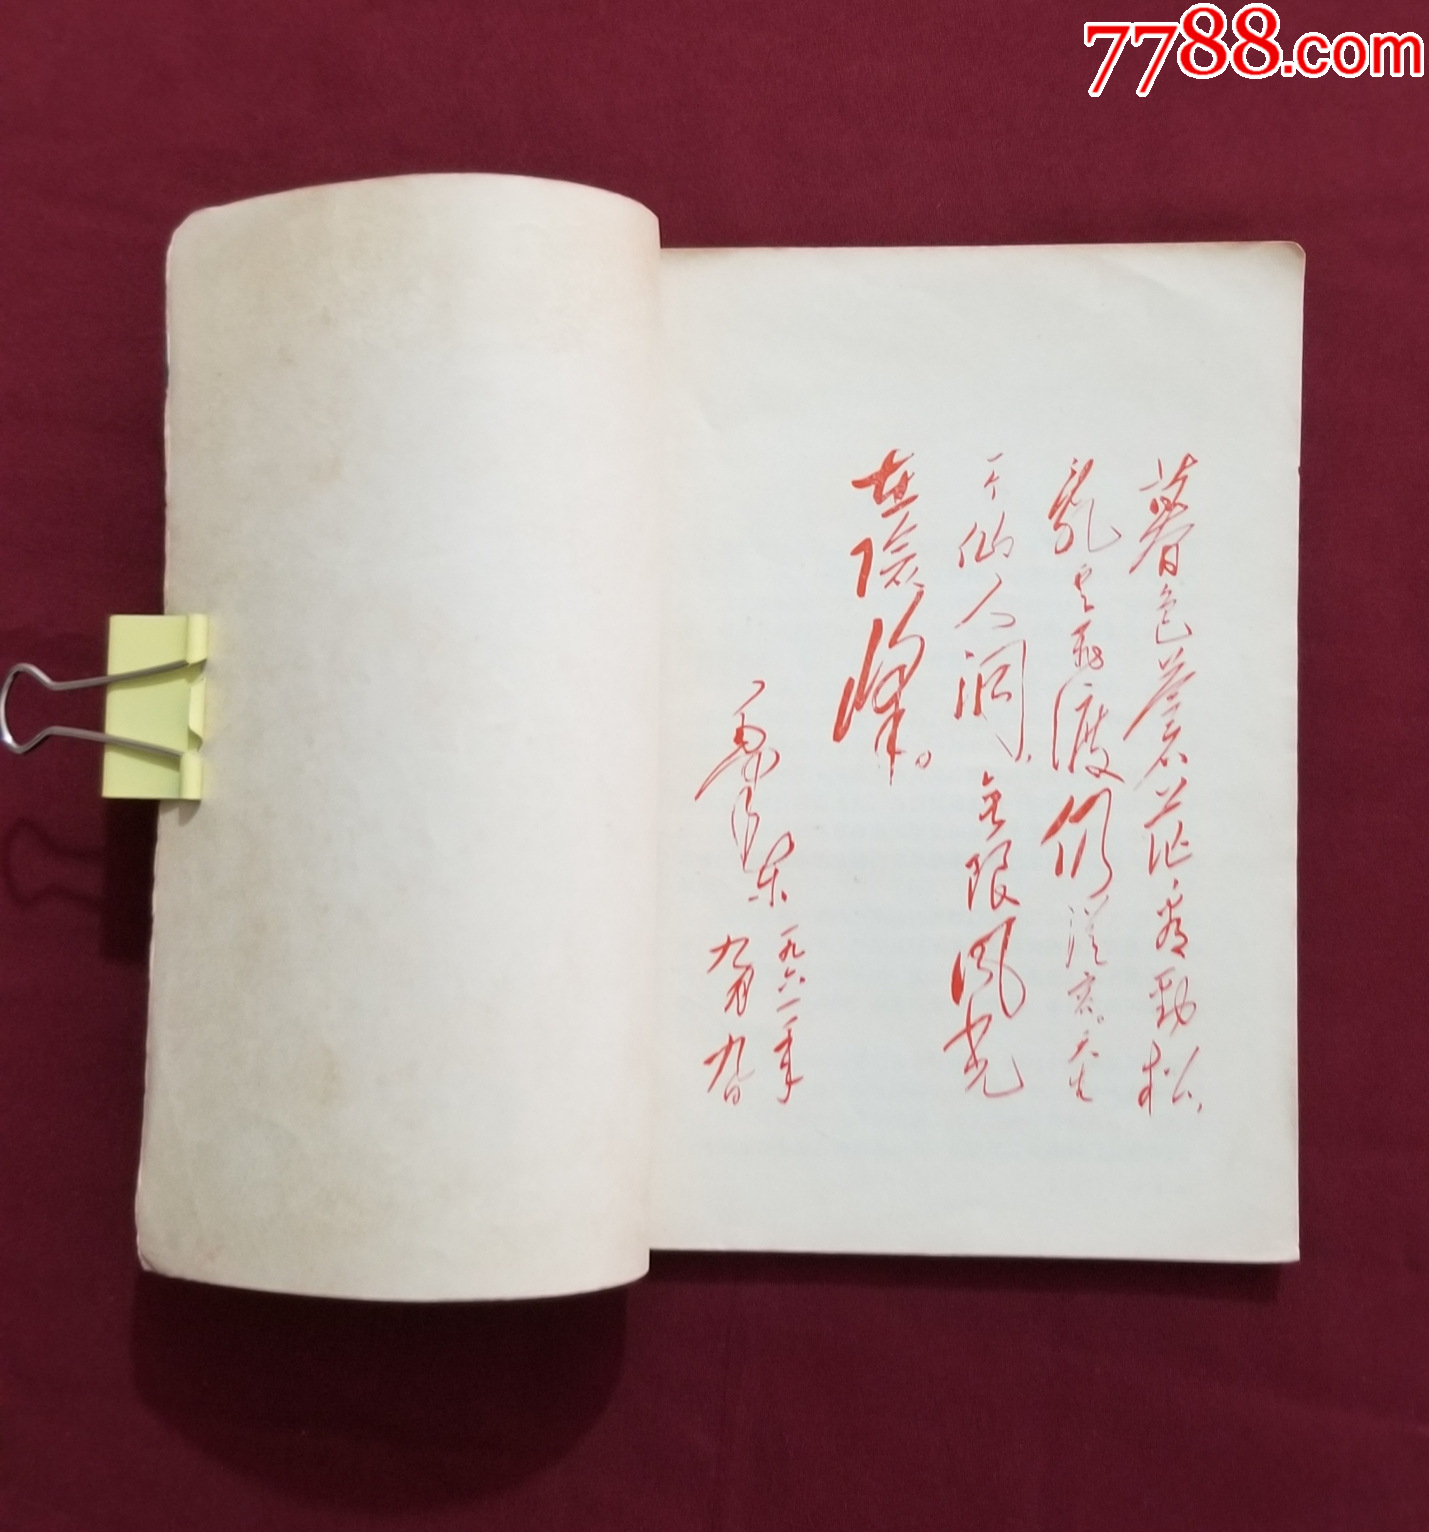 7788.com
暮色蒼茫看勁松,
乱云飛渡仍從容。天生
一个仙人洞,無限風光
在險峰。
毛澤東
一九六一年
九月九日